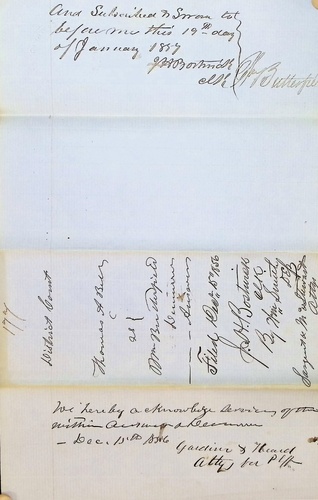 And Subscribed & Sworn to
before me this 19th day
of January 1857
J H Bostwick
clk
Wm Butterfield
177
District Court
Thomas A B
vs
Wm Butterfield
Demurrer
Answer
Filed Dec 15th 1856
J H Bostwick
Clk
By Wm Smith
Atty
We hereby acknowledge service of the
within answer & Demurrer
Dec. 15th 1856
Gardiner & Heard
Attys for Plff